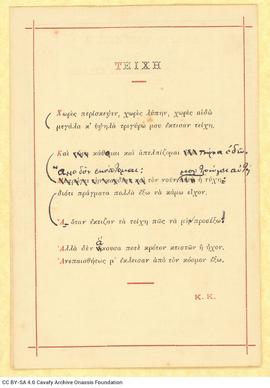 ΤΕΙΧΗ
Χωρὶς περίσκεψιν, χωρὶς λύπην, χωρὶς αἰδὼ
μεγάλα κ' ὑψηλὰ τριγύρω μου ἔκτισαν τείχη.
Καὶ κάθομαι καὶ ἀπελπίζομαι τώρα ἐδῶ.
Ἄλλο δὲν σκέπτομαι: τὸν νοῦν μου τρώγει αὐτὴ ἡ τύχη·
διότι πράγματα πολλὰ ἔξω νὰ κάμω εἶχον.
Ἆ ὅταν ἔκτιζαν τὰ τείχη πῶς νὰ μὴ προσέξω!
Ἀλλὰ δὲν ἄκουσα ποτὲ κρότον κτιστῶν ἢ ἦχον.
Ἀνεπαισθήτως μ' ἔκλεισαν ἀπὸ τὸν κόσμον ἔξω.
Κ. Κ.
CC BY-SA 4.0 Cavafy Archive Onassis Foundation